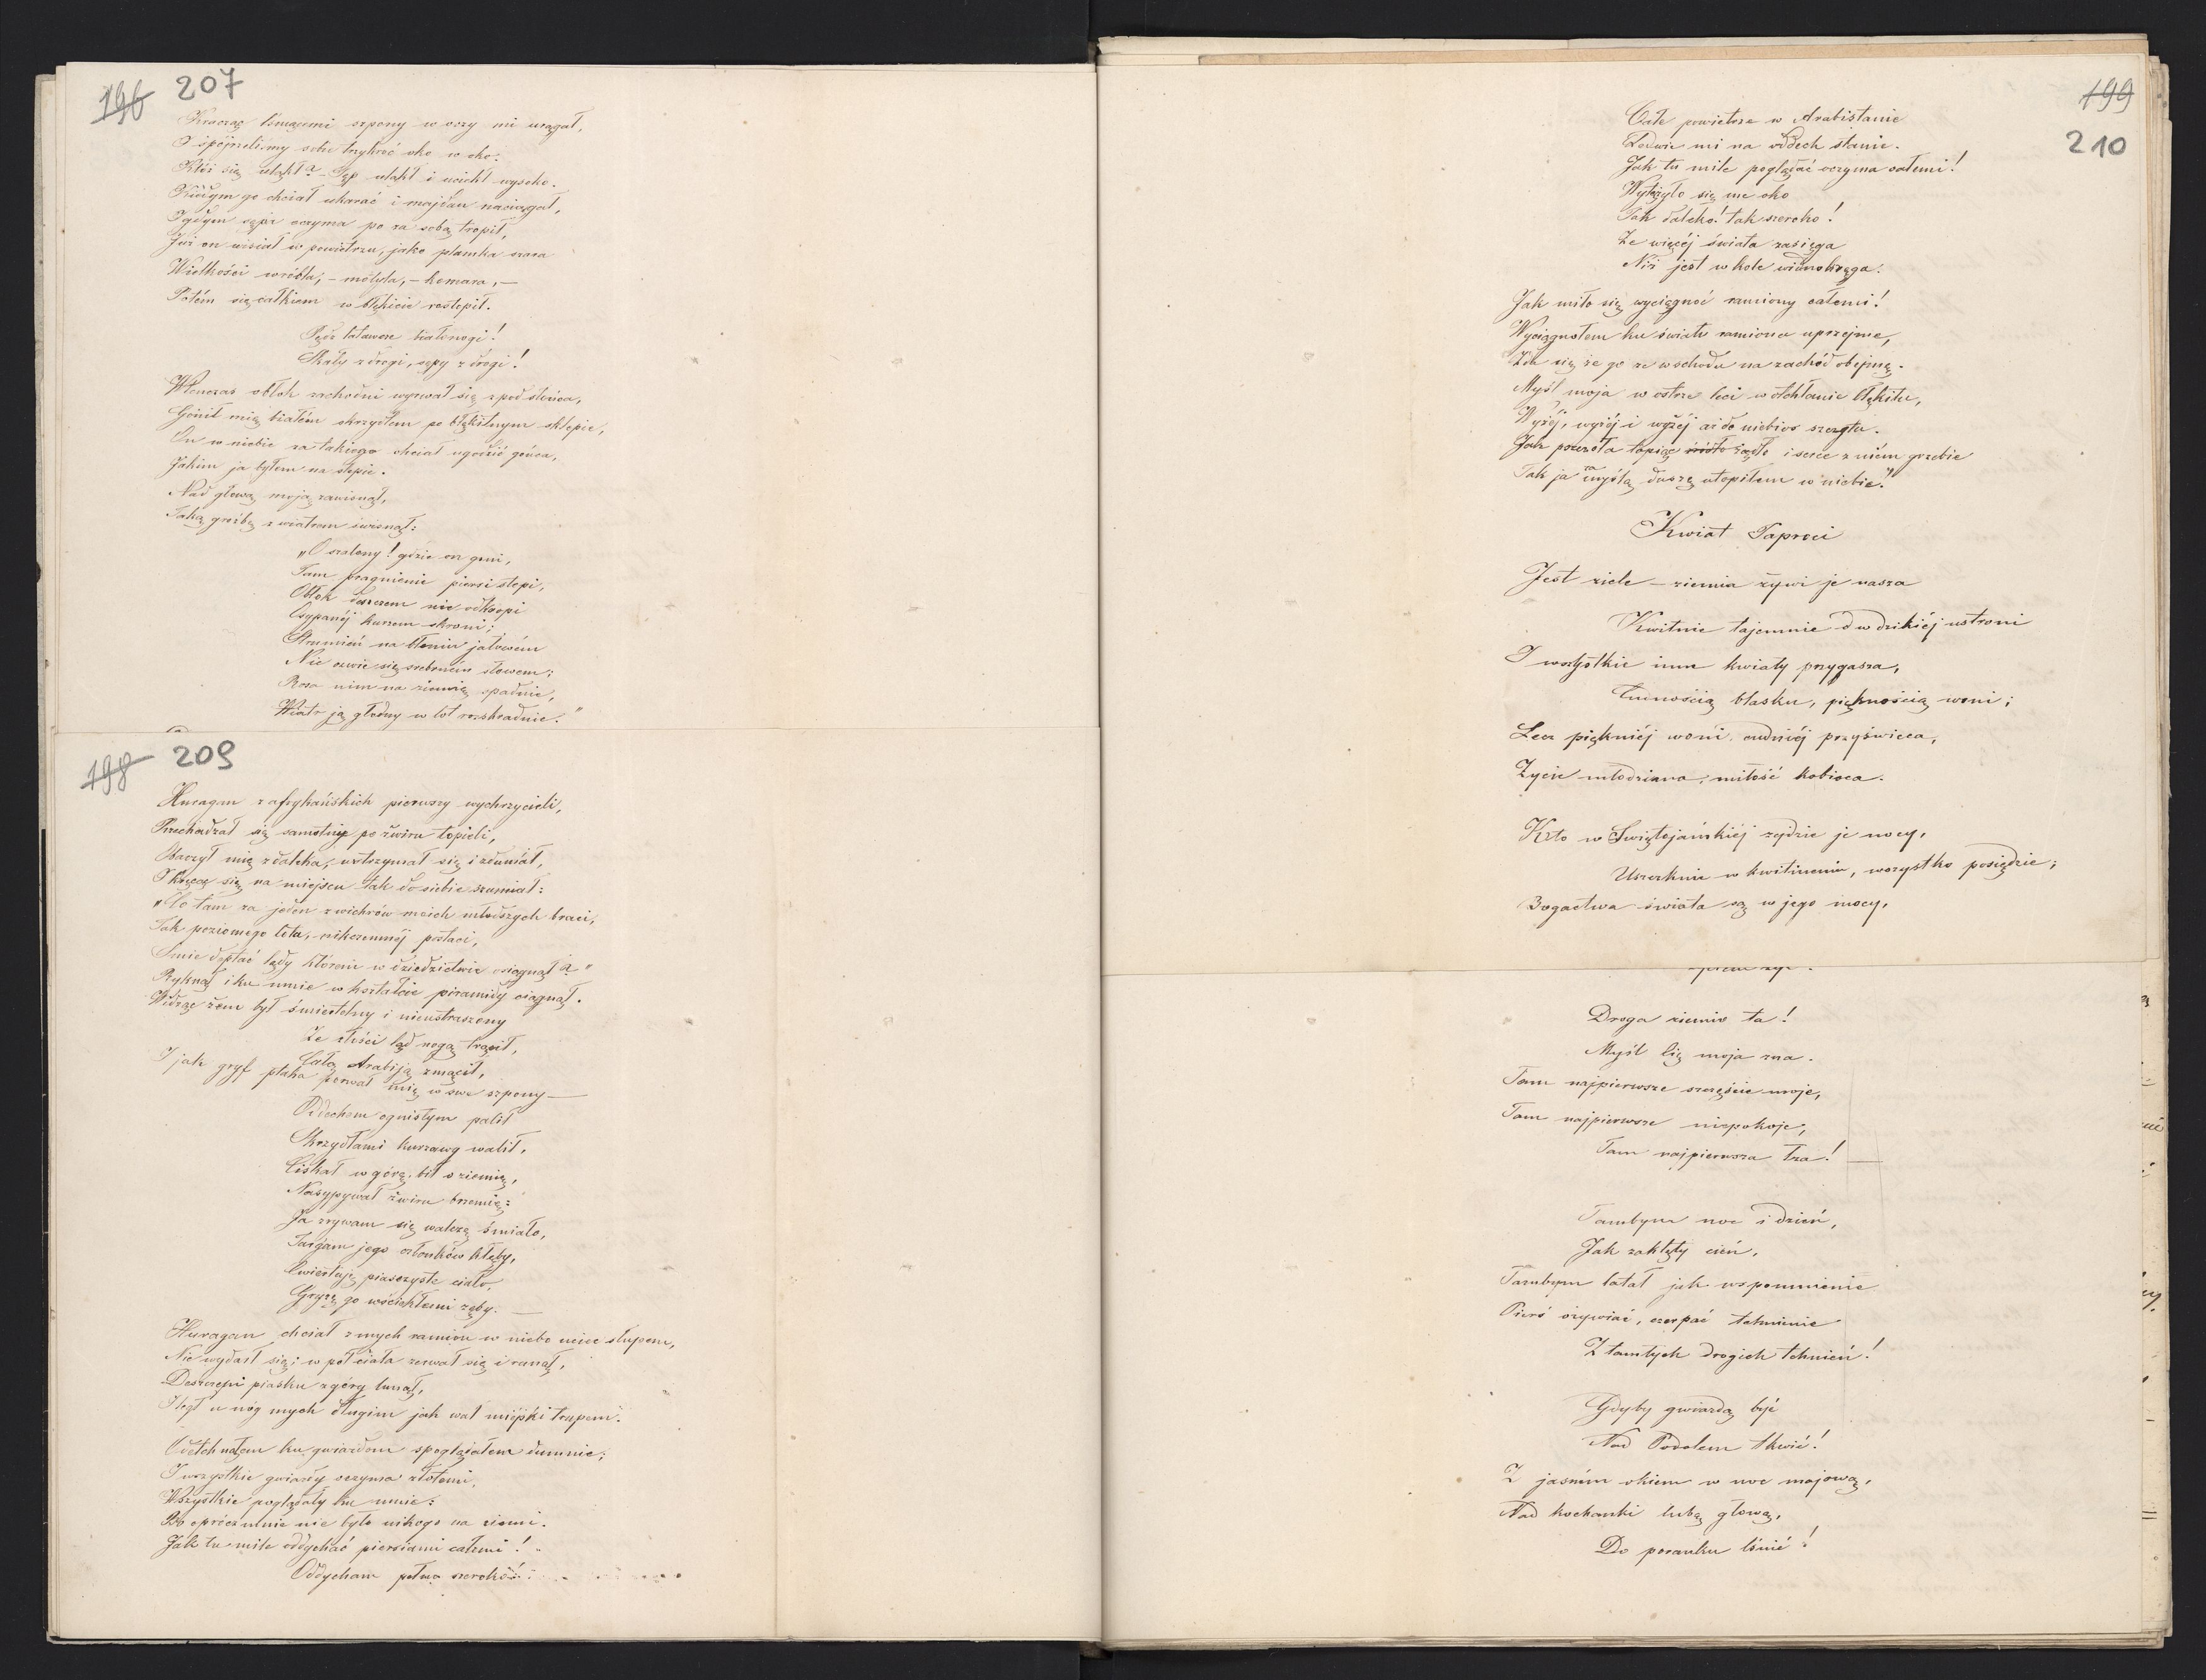 196 207
Kracząc lśniącemi szpony w oczy mi urągał,
I spójrzelismy sobie trzykroć oko w oko.
Któż się uląkł? – Sęp uląkł i uciekł wysoko.
Kiedym go chciał ukarać i majdan naciągał,
I gdym sępa oczyma po za sobą tropił,
Już on wisiał w powietrzu, jako plamka szara
Wielkości wróbla, – motyla, – komara, –
Potém się całkiem w błękicie roztopił.
Pędź latawcze białonogi!
Skały z drogi, sępy z drogi!
Wtenczas obłok zachodni wyrwał się z pod słońca,
Gonił mię białém skrzydłem po błękitnym sklepie,
On w niebie za takiego chciał ugodzić gońca,
Jakim ja byłem na stepie.
Nad głową moją zawisnął,
Taką groźbę z wiatrem świsnął:
„O szalony! gdzie on goni,
Tam pragnienie piersi stopi,
Obłok deszczem nie odkropi
Osypanéj kurzem skroni;
Strumień na błoniu jałowém
Nie ozwie się srebrném słowem;
Rosa nim na ziemię spadnie,
Wiatr ją głodny w lot rozkradnie."
198 209
Huragan z afrykańskich pierwszy wichrzycieli,
Przechadzał się samotny po żwiru topieli,
Obaczył mię zdaleka, wstrzymał się i zdumiał,
I kręcąc się na miejscu tak do siebie szumiał:
„Co tam za jeden z wichrów moich młodszych braci,
Tak poziomego lotu, nikczemnéj postaci,
Śmie deptać lądy którem w dziedzictwie osiągnął?"
Ryknął i ku mnie w kształcie piramidy ciągnął.
Widząc żem był śmiertelny i nieustraszony
Ze złości ląd nogą trącił,
Całą Arabiją zmącił,
I jak gryf ptaka porwał mię w swe szpony –
Oddechem ognistym palił
Skrzydłami kurzawy walił,
Ciskał w górę, bił o ziemię,
Nasypywał żwiru brzemię:
Ja zrywam się walczę śmiało,
Targam jego członków kłęby,
Ćwiertuję piaszczyste ciało,
Gryzę go wściekłemi zęby. –
Huragan chciał z mych ramion w niebo uciec słupem,
Nie wydarł się; w pół ciała zerwał się i runął,
Deszczem piasku z góry lunął,
I legł u nóg mych długim jak wał miejski trupem.
Odetchnąłem ku gwiazdom spoglądałem dumnie;
I wszystkie gwiazdy oczyma złotemi,
Wszystkie poglądały ku mnie:
Bo oprócz mnie nie było nikogo na ziemi.
Jak tu mile oddychać piersiami całemi!
Oddycham pełno szeroko!
199
210
Całe powietrze w Arabistanie
Ledwie mi na oddech stanie.
Jak tu mile poglądać oczyma całemi!
Wytężyło się me oko
Tak daleko! tak szeroko!
Że więcéj świata zasięga
Niż jest w kole widnokręga.
Jak miło się wyciągnąć ramiony całemi!
Wyciągnąłem ku światu ramiona uprzejme,
Zda się że go ze wschodu na zachód obejmę.
Myśl moja w ostrze leci w otchłanie błękitu,
Wyżéj, wyżéj i wyżéj aż do niebios szczytu.
Jak pszczoła topiąc żądło i serce z niém grzebie
Tak ja za myślą duszę utopiłem w niebie!"
Kwiat Paproci
Jest ziele – ziemia żywi je nasza
Kwitnie tajemnie w dzikiéj ustroni
I wszystkie inne kwiaty przygasza,
Cudnością blasku, pięknością woni;
Lecz piękniéj woni, cudniéj przyświeca,
Życie młodziana, miłość kobieca.
Kto w Świętojańskiéj zejdzie je nocy,
Uszczknie w kwitnieniu, wszystko posiędzie;
Bogactwa świata są w jego mocy,
Droga ziemio ta!
Myśl cię moja zna.
Tam najpierwsze szczęście moje,
Tam najpierwsze niepokoje,
Tam najpierwsza łza!
Tambym noc i dzień,
Jak zaklęty cień,
Tambym latał jak wspomnienie
Pierś ożywiać, czerpać tchnienie
Z tamtych drogich tchnień!
Gdyby gwiazdą być
Nad Podolem tkwić!
Z jasném okiem w noc majową,
Nad kochanki lubą głową,
Do poranku lśnić!